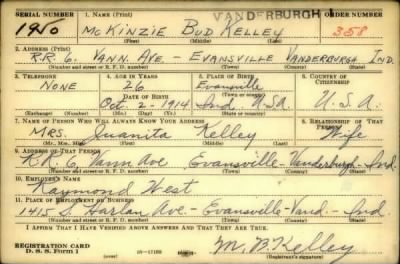 SERIAL NUMBER 1. NAME (Print) VANDERBURGH 1 ORDER NUMBER
1950 McKINZIE BUD KELLEY 358
(First) (Middle) (Last)
2. ADDRESS (Print)
R.R. 6. VANN AVE. - EVANSVILLE VANDERBURGH IND.
(Number and street or R. F. D. number) (Town) (County) (State)
3. TELEPHONE 4. AGE IN YEARS 5. PLACE OF BIRTH 6. COUNTRY OF CITIZENSHIP
NONE 26 Evansville
DATE OF BIRTH (Town or county)
Oct. 2 - 1914 Ind. U.S.A. U.S.A.
(Exchange) (Number) (Mo.) (Day) (Yr.) (State or country)
7. NAME OF PERSON WHO WILL ALWAYS KNOW YOUR ADDRESS 8. RELATIONSHIP OF THAT PERSON
MRS. Juanita Kelley Wife
(Mr., Mrs., Miss) (First) (Middle) (Last)
9. ADDRESS OF THAT PERSON
R.R. 6. Vann Ave Evansville - Vanderburgh - Ind.
(Number and street or R. F. D. number) (Town) (County) (State)
10. EMPLOYER'S NAME
Raymond West
11. PLACE OF EMPLOYMENT OR BUSINESS
1415 S Harlan Ave - Evansville - Vand. - Ind
(Number and street or R. F. D. number) (Town) (County) (State)
I AFFIRM THAT I HAVE VERIFIED ABOVE ANSWERS AND THAT THEY ARE TRUE.
REGISTRATION CARD
D. S. S. Form 1 (over) M. B. Kelley
(Registrant's signature)